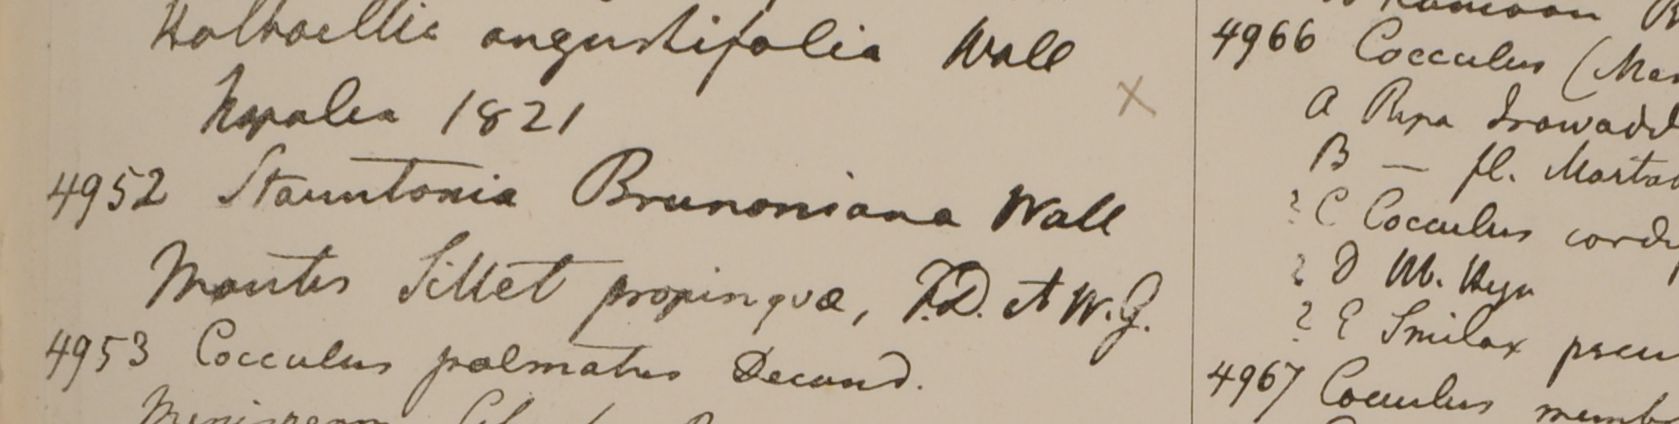 Holboellia angustifolia Wall
Napalia 1821
4952 Stauntonia Brunoniana Wall
Montes Sillet propinquæ, F.D. et W.G.
4953 Cocculus palmatus Decand.
Menisperm
4966 Cocculus
A Ripa Irawadd
B — fl. Marta
? C Cocculus cord
? D
? E Smilax pseu
4967 Cocculus memb